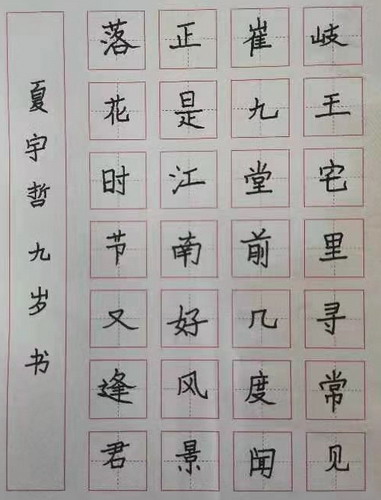 岐王宅里寻常见
崔九堂前几度闻
正是江南好风景
落花时节又逢君
夏宇哲 九岁书